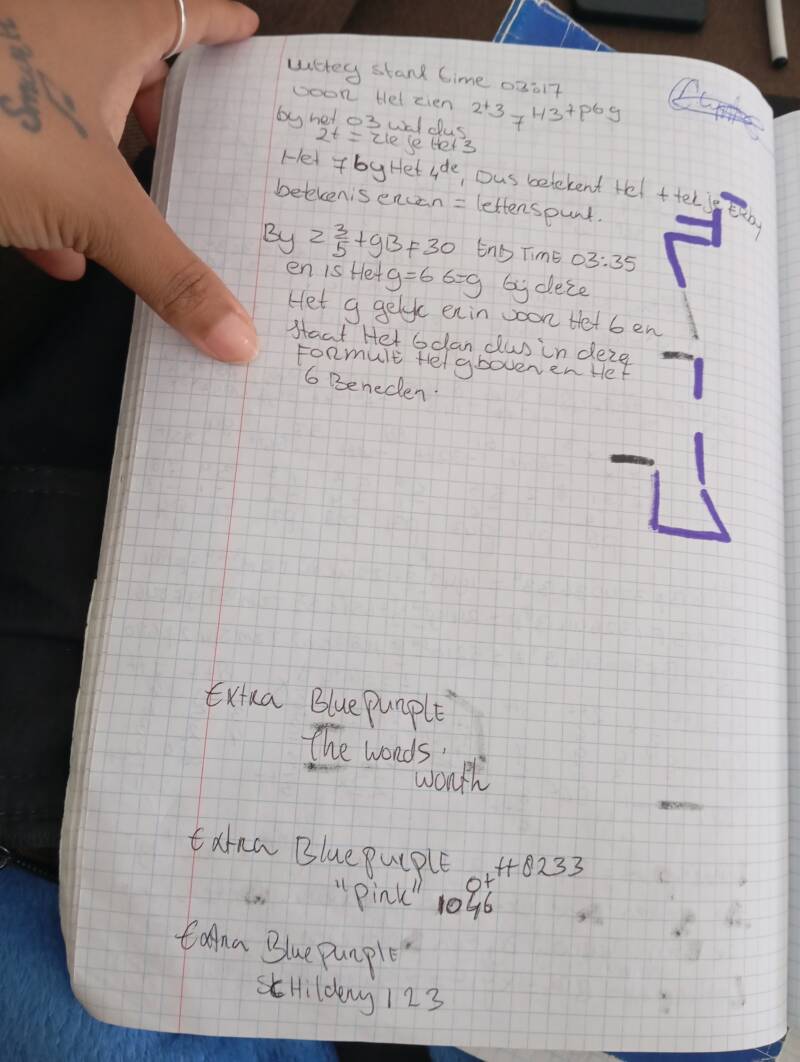 start time 03:17
voor Het zien 2+3 7 H3+p6g
by het 03 wel dus
2+ = zie je Het 3
Het 7 by Het 4de, Dus betekent Het + tekje Erby
betekenis ervan = letterspunt.
By 2 3/5 + gB F 30 End Time 03:35
en is Het g=6 6=g by deze
Het g gelyk erin voor Het 6 en
staat Het 6 dan dus in deze
Formule Het g boven en Het
6 Beneden.
Extra Blue purple
The words.
worth
Extra Blue purple
"pink" 1046 0+ H8233
Extra Blue purple
SCHildery 123
Smurk